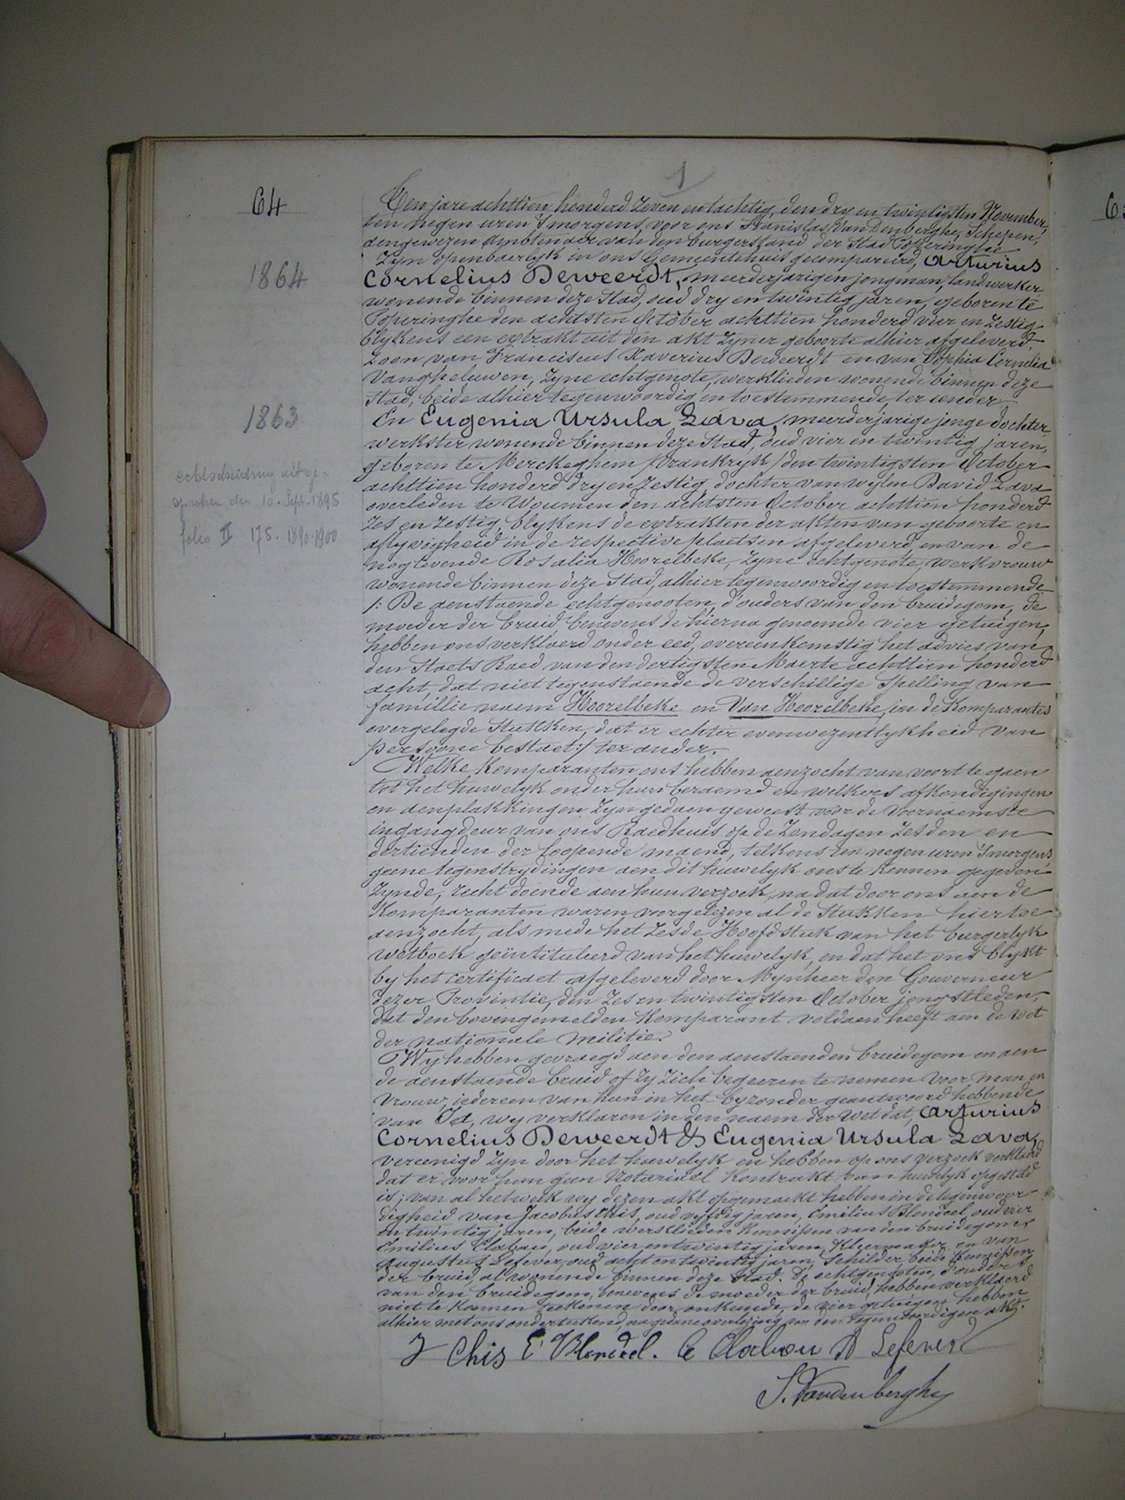 1
64
Ten jare achttien honderd zeven en tachtig, den dry en twintigsten November,
ten negen uren 's morgens, voor ons Stanislas Van Den Berghe, Schepen,
aengewezen Ambtenaer van den burgerstand der Stad Poperinghe
Zyn openbaerlyk in ons Gemeentehuis gecompareerd, Arturius
1864
Cornelius Deweerdt, meerderjarigen jongman, landwerker
wonende binnen deze Stad, oud dry en twintig jaren, geboren te
Poperinghe den achtsten October achttien honderd vier en Zestig
blykens een extrakt uit den akt zyner geboorte alhier afgeleverd.
Zoon van Franciscus Xaverius Deweerdt en van Sophia Cornelia
Vangheluwen, zyne echtgenote, werklieden wonende binnen deze
Stad, beide alhier tegenwoordig en toestemmende, ter eender
1863
En Eugenia Ursula Zava, meerderjarige jonge dochter,
werkster wonende binnen deze Stad, oud vier en twintig jaren,
geboren te Merckeghem (Vrankryk) den twintigsten October
achttien honderd dry en Zestig, dochter van wylen David Zava
echtscheiding uitge-
sproken den 10 Sept. 1895
folio II 175. 1890-1900
overleden te Woumen den achtsten October achttien honderd
Zes en Zestig, blykens de extrakten der akten van geboorte en
aflyvigheid, in de respective plaetsen afgeleverd, en van de
nogtevende Rosalia Hoorelbeke, zyne echtgenote, werkvrouw
wonende binnen deze Stad, alhier tegenwoordig en toestemmende
/: De aenstaende echtgenooten, d'ouders van den bruidegom, de
moeder der bruid benevens de hierna genoemde vier getuigen,
hebben ons verklaerd onder eed, overeenkomstig het advies van
den Staets Raed van den dertigsten Maerte achttien honderd
acht, dat niet tegenstaende de verschillige spelling van
famillie naem Hoorelbeke en Van Hoorelbeke, in de Komparantes
overgelegde Stukken, dat er echter evenwezentlykheid van
persoone bestaet:/ ter ander.
Welke Komparanten ons hebben aenzocht van voort te gaen
tot het huwelyk onder hun beraemd en welkers afkondigingen
en aenplakkingen zyn gedaen geweest voor de voornaemste
ingangdeur van ons Raedhuis op de Zondagen zesden en
dertienden der loopende maend, telkens ten negen uren 's morgens
geene tegenstrydingen aen dit huwelyk ons te kennen gegeven
Zynde, recht doende aen hun verzoek, na dat door ons aen de
Komparanten waren voorgelezen al de Stukken hiertoe
aenzocht, als mede het Zesde Hoofdstuk van het burgerlyk
wetboek geïntituleerd van het huwelyk, en dat het ons blykt
by het certificaet afgeleverd door Mynheer den Gouverneur
dezer Provintie, den Zes en twintigsten October jongstleden,
dat den bovengemelden Komparant voldaen heeft aen de wet
der nationale militie.
Wy hebben gevraegd aen den aenstaenden bruidegom en aen
de aenstaende bruid of zy zich begeeren te nemen voor man en
vrouw, iedereen van hun in het byzonder geantwoord hebbende
van Ja, wy verklaren in den naem der wet dat, Arturius
Cornelius Deweerdt & Eugenia Ursula Zava,
vereenigd zyn door het huwelyk en hebben op ons verzoek verklaerd
dat er voor hun geen Notariael Kontrakt van huwelyk opgesteld
is; van al hetwelk wy dezen akt opgemaekt hebben in de tegenwoor-
digheid van Jacobus Chis, oud vyftig jaren, Emilius Blondeel, oud vier
en twintig jaren, beide werklieden Kennissen van den bruidegom,
Emilius Clabau, oud vier en twintig jaren, Kleermaker en van
Augustus Lefever, oud acht en twintig jaren, Schilder, beide Kennissen
der bruid, al wonende binnen deze Stad. De echtgenoten, d'ouders
van den bruidegom, benevens de moeder der bruid, hebben verklaerd
niet te konnen teekenen door onkunde, de vier getuigen hebben
alhier met ons onderteekend, na gedane voorlezing van den tegenwoordigen akt.
J Chis E Blondeel. E Clabau A Lefever
S. Vandenberghe